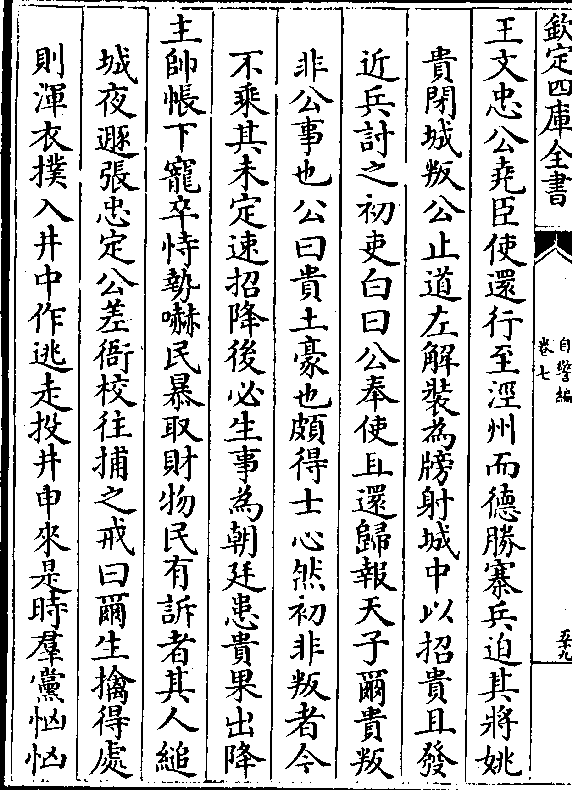 欽定四庫全書
自警編
卷七
五十九
王文忠公堯臣使還行至涇州而德勝寨兵迫其將姚
貴閉城叛公止道左解裝為牓射城中以招貴且發
近兵討之初吏白曰公奉使且還歸報天子爾貴叛
非公事也公曰貴土豪也頗得士心然初非叛者今
不乘其未定速招降後必生事為朝廷患貴果出降
主帥帳下寵卒恃勢嚇民暴取財物民有訴者其人縋
城夜遯張忠定公差衙校往捕之戒曰爾生擒得處
則渾衣撲入井中作逃走投井申來是時羣黨忷忷